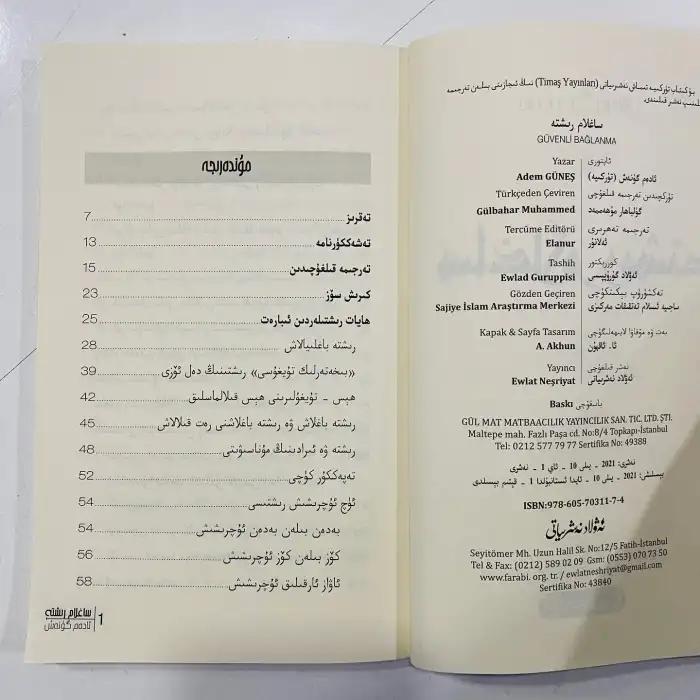 بۇ كىتاب تۈركىيە تىماش نەشرىياتى (Timaş Yayınları) نىڭ ئىجازىتى بىلەن تەرجىمە
قىلىنىپ نەشر قىلىندى.
ساغلام رىشتە
GÜVENLİ BAĞLANMA
Yazar ئاپتورى
Adem GÜNEŞ ئادەم گۈنەش (تۈركىيە)
Türkçeden Çeviren تۈركچىدىن تەرجىمە قىلغۇچى
Gülbahar Muhammed گۈلباھار مۇھەممەد
Tercüme Editörü تەرجىمە تەھرىرى
Elanur ئەلانۇر
Tashih كوررېكتور
Ewlad Guruppisi ئەۋلاد گۇرۇپپىسى
Gözden Geçiren تەكشۈرۈپ بېكىتكۈچى
Sajiye İslam Araştırma Merkezi ساجىيە ئىسلام تەتقىقات مەركىزى
Kapak & Sayfa Tasarım بەت ۋە مۇقاۋا لايىھەلىگۈچى
A. Akhun ئا. ئاخۇن
Yayıncı نەشر قىلغۇچى
Ewlat Neşriyat ئەۋلاد نەشرىياتى
Baskı باسقۇچى
GÜL MAT MATBAACILIK YAYINCILIK SAN. TİC. LTD. ŞTİ.
Maltepe mah. Fazlı Paşa cd. No:8/4 Topkapı-İstanbul
Tel: 0212 577 79 77 Sertifika No: 49388
نەشرى: 2021 - يىلى 10 - ئاي 1 - نەشرى
بېسىلىشى: 2021 - يىلى 10 - ئايدا ئىستانبۇلدا 1 - قېتىم بېسىلدى
ISBN:978-605-70311-7-4
ئەۋلاد نەشرىياتى
Seyitömer Mh. Uzun Halil Sk. No:12/5 Fatih-İstanbul
Tel & Fax: (0212) 589 02 09 Gsm: (0553) 070 73 50
www.farabi. org. tr. / ewlatneshriyat@gmail.com
Sertifika No: 43840
مۇندەرىجە
تەقرىز 7
تەشەككۈرنامە 13
تەرجىمە قىلغۇچىدىن 15
كىرىش سۆز 23
ھايات رىشتىلەردىن ئىبارەت 25
رىشتە باغلىيالاش 28
«بىخەتەرلىك تۇيغۇسى» رىشتىنىڭ دەل ئۆزى 39
ھېس - تۇيغۇلىرىنى ھېس قىلالماسلىق 42
رىشتە باغلاش ۋە رىشتە باغلاشنى رەت قىلالاش 45
رىشتە ۋە ئىرادىنىڭ مۇناسىۋىتى 48
تەپەككۇر كۈچى 52
ئۈچ ئۇچرىشىش رىشتىسى 54
بەدەن بىلەن بەدەن ئۇچرىشىش 54
كۆز بىلەن كۆز ئۇچرىشىش 56
ئاۋاز ئارقىلىق ئۇچرىشىش 58
ساغلام رىشتە
ئادەم گۈنەش
1